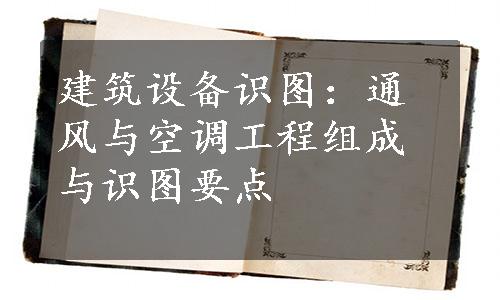 建筑设备识图：通
风与空调工程组成
与识图要点